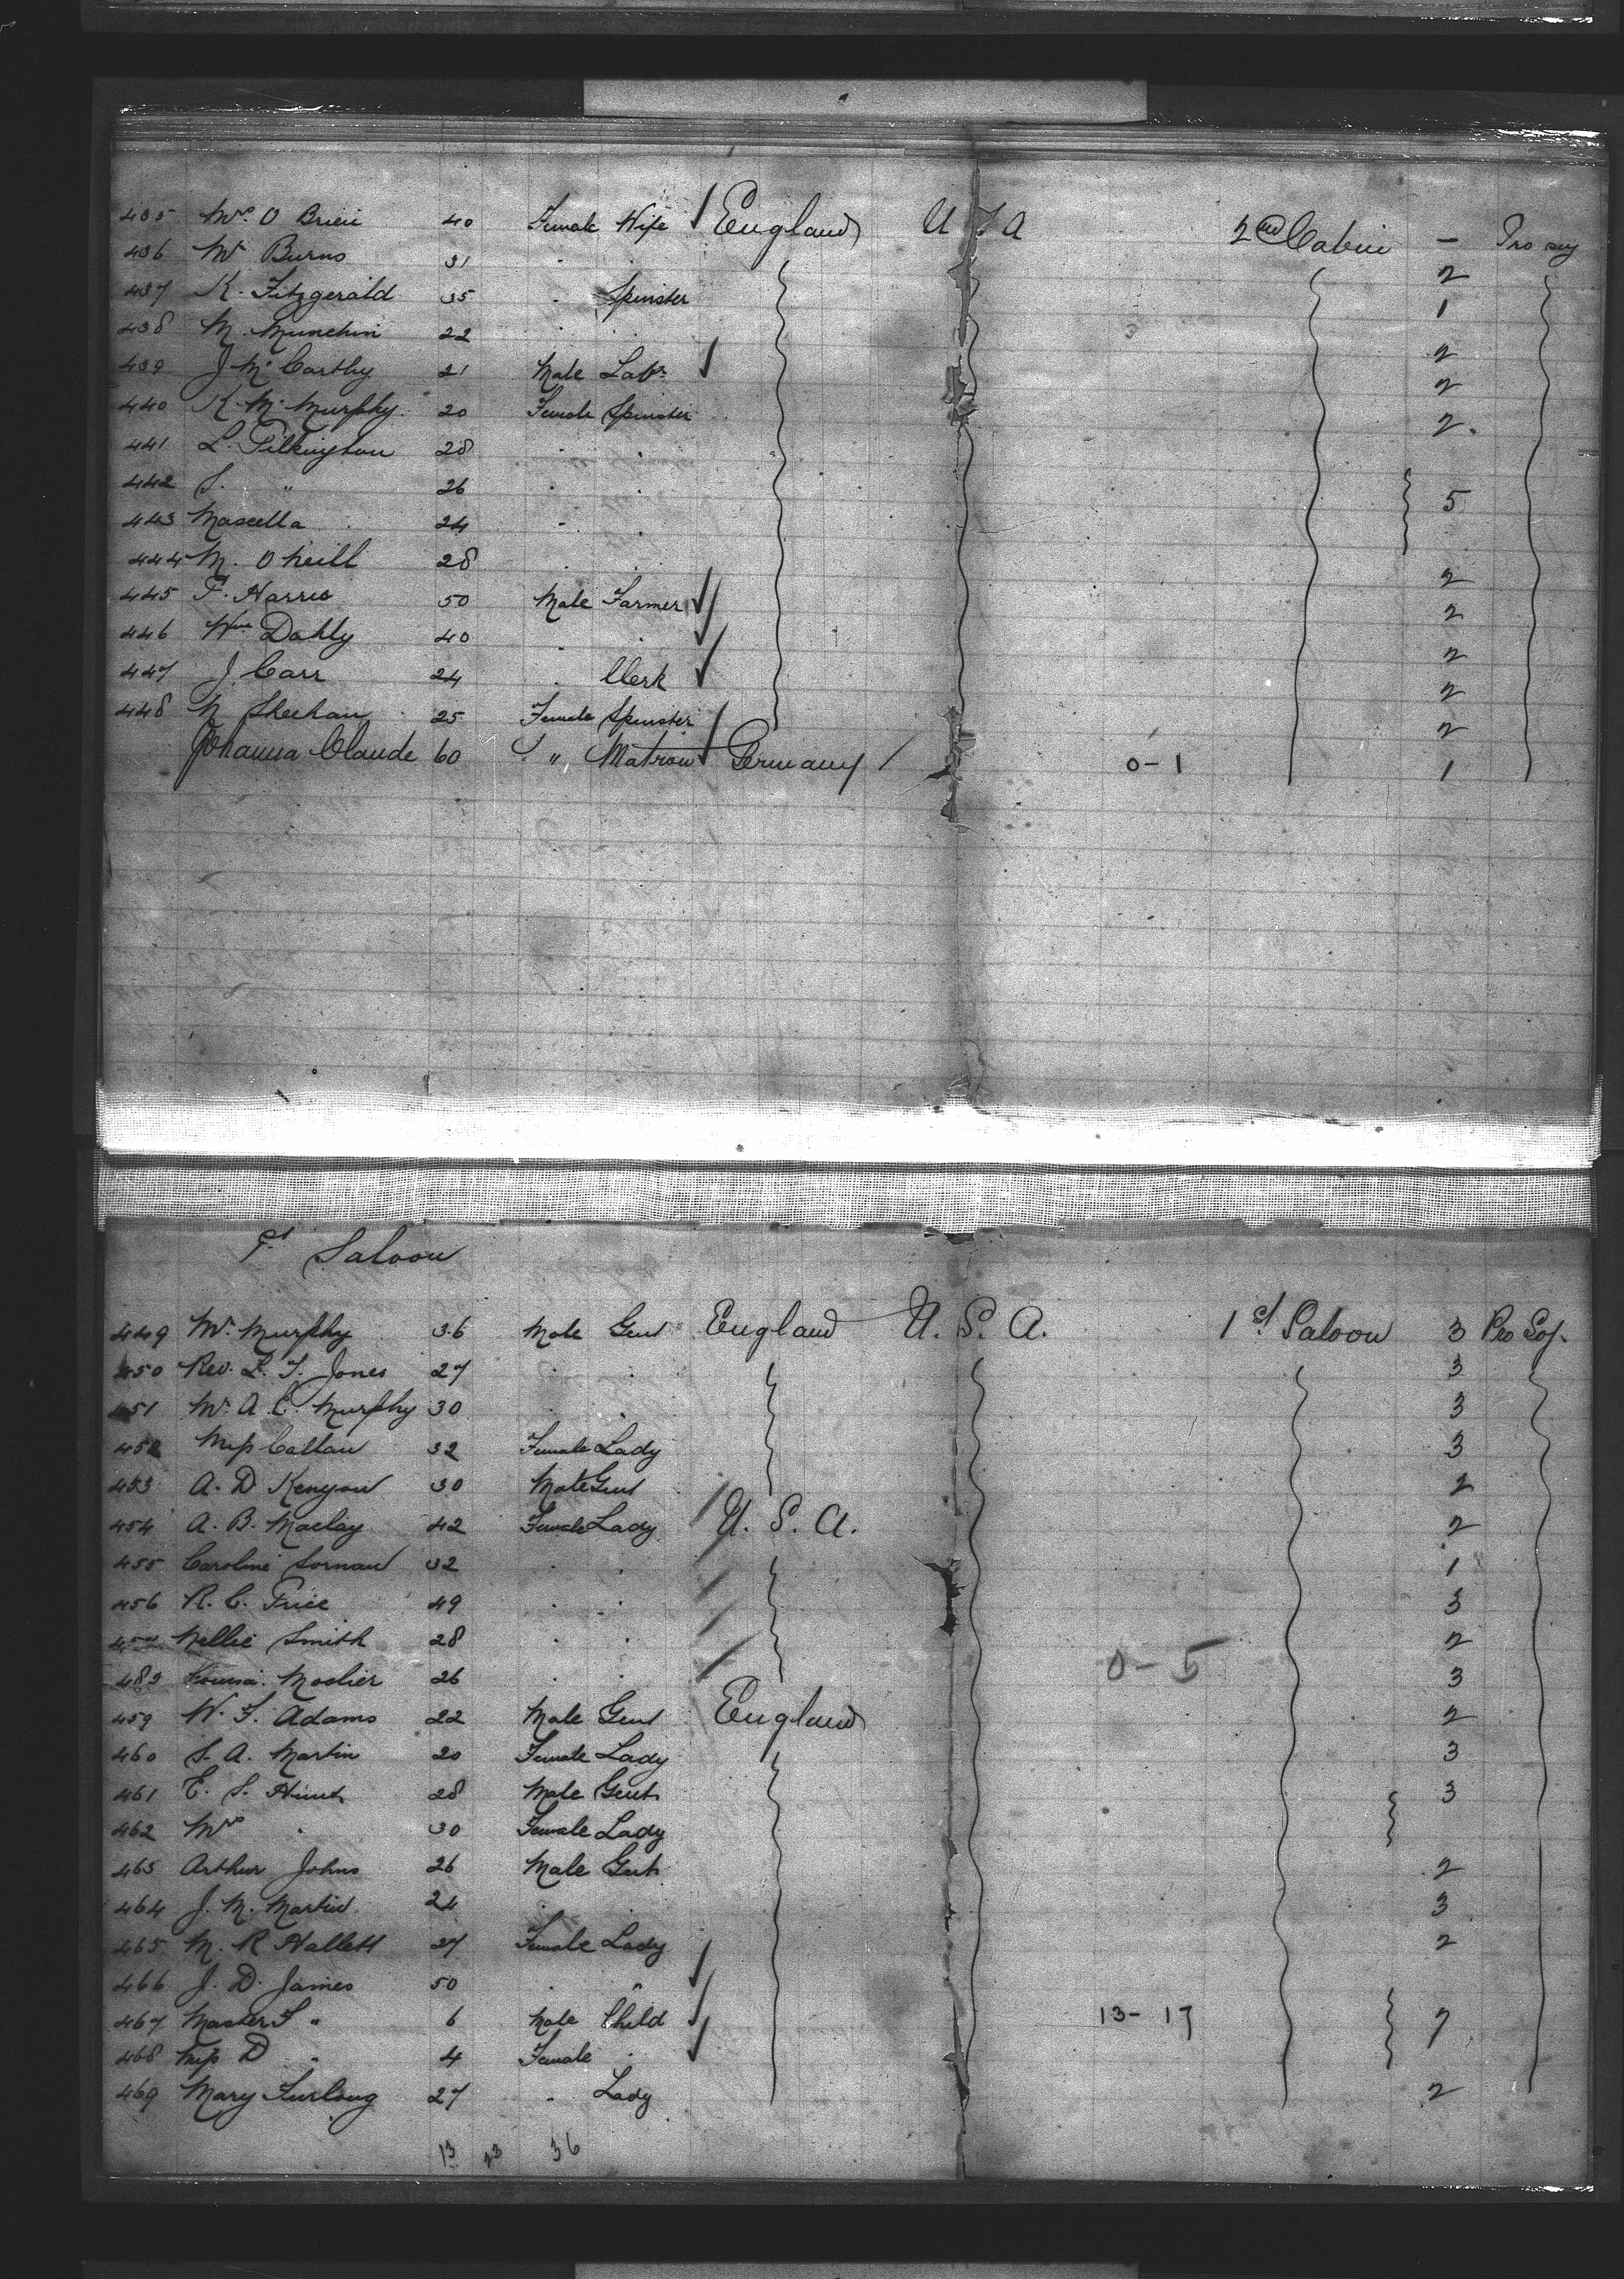 435 Mrs O Brien 40 Female Wife England U S A 2nd Cabin - Pro soj
436 Mr Burns 31 " " 2
437 K. Fitzgerald 35 " Spinster 1
438 M. Munchin 22 " " 2
439 J McCarthy 21 Male Labr 2
440 K McMurphy 20 Female Spinster 2.
441 L. Pilkington 28 " "
442 S. " 26 " " 5
443 Mascella " 24 " "
444 M. O Neill 28 " " 2
445 F. Harris 50 Male Farmer 2
446 Wm Dahly 40 " " 2
447 J. Carr 24 " Clerk 2
448 N Sheehan 25 Female Spinster 2
Johanna Claude 60 " Matron Germany 0-1 1
1st Saloon
449 Mr. Murphy 36 Male Gent England U. S. A. 1st Saloon 3 Pro Soj.
450 Rev. L. T. Jones 27 " " 3
451 Mr. A. C. Murphy 30 " " 3
452 Miss Callan 32 Female Lady 3
453 A. D Kenyon 30 Male Gent 2
454 A. B. Maclay 42 Female Lady U. S. A. 2
455 Caroline 32 " " 1
456 R. C. Price 49 " " 3
Nellie Smith 28 " " 0-5 2
Louisa Mosher 26 " " 3
459 W. F. Adams 22 Male Gent England 2
460 S. A. Martin 20 Female Lady 3
461 E. S. Hunt 28 Male Gent 3
462 Mrs " 30 Female Lady
463 Arthur Johns 26 Male Gent 2
464 J. M. Martin 24 " " 3
465 M. R Hallett 27 Female Lady 2
466 J. D. James 50 " "
467 Master F " 6 Male Child 13-17 7
468 Miss D " 4 Female "
469 Mary Furlong 27 " Lady 2
13 23 36